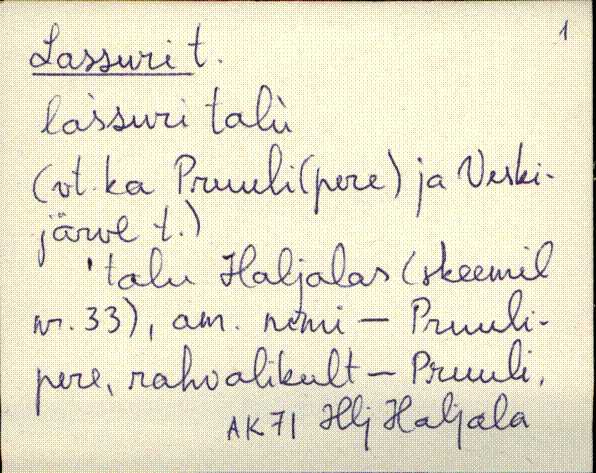 1
Lassuri t.
làssuri talù
(vt. ka Pruuli(pere) ja Veski-
järve t.)
'talu Haljalas (skeemil
nr. 33), am. nimi – Pruuli-
pere, rahvalikult – Pruuli,
AK 71 Hlj Haljala